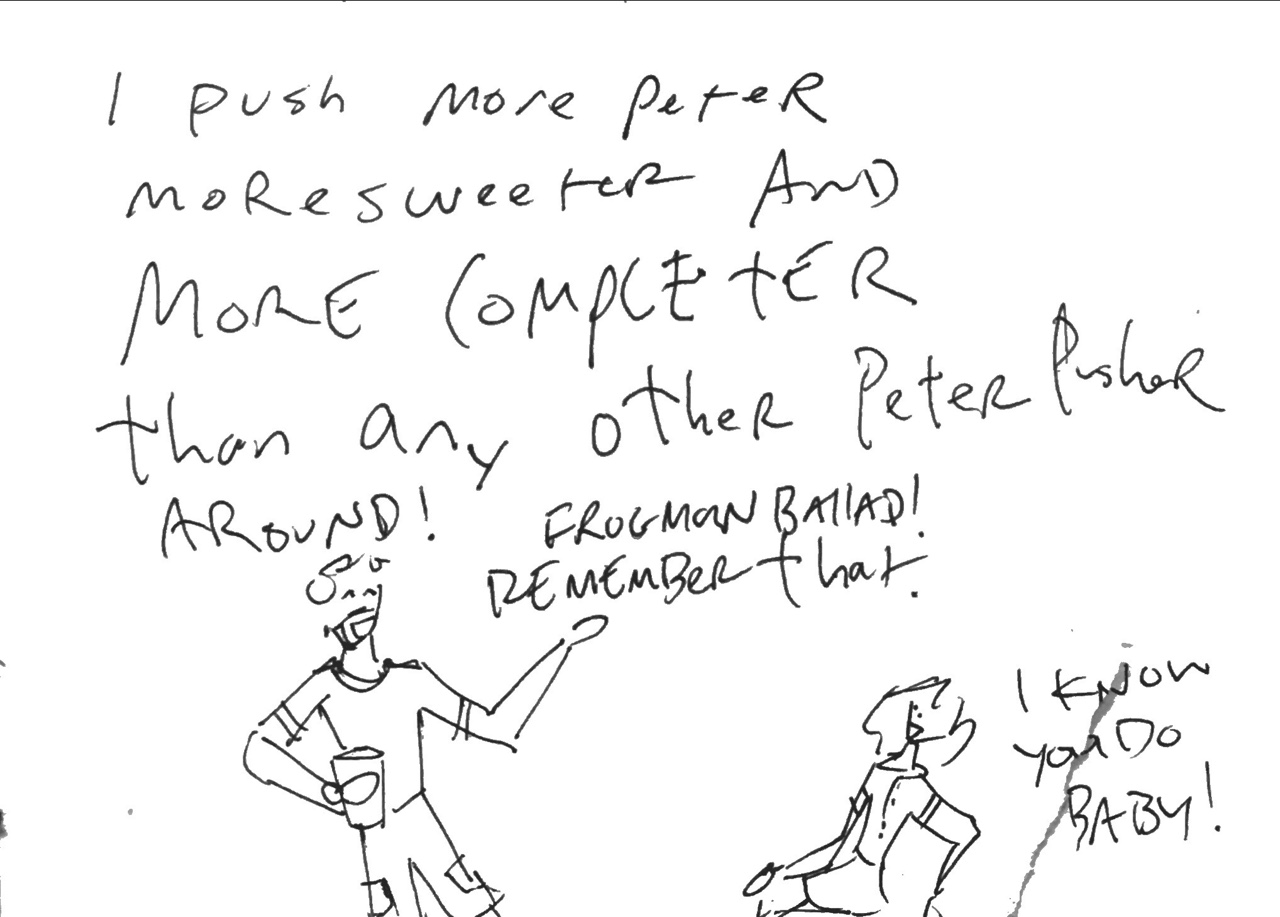 I push more peteR
moRe sweeter AnD
MORE COMPLETER
than any other Peter Pusher
AROUND!
FROGMAN BALLAD!
REMEMBeR that.
I KNOW
you Do
BABY!